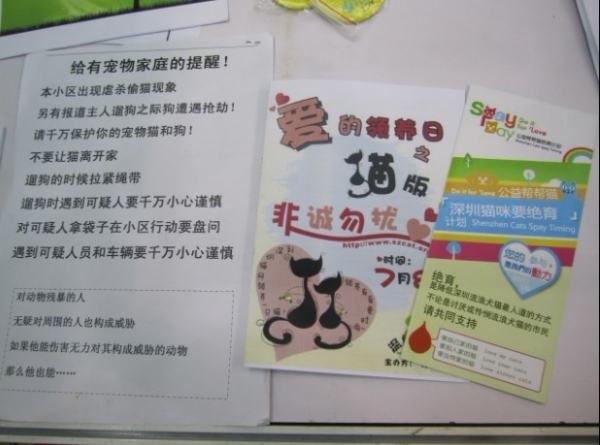 给有宠物家庭的提醒！
本小区出现虐杀偷猫现象
另有报道主人遛狗之际狗遭遇抢劫！
请千万保护你的宠物猫和狗！
不要让猫离开家
遛狗的时候拉紧绳带
遛狗时遇到可疑人要千万小心谨慎
对可疑人拿袋子在小区行动要盘问
遇到可疑人员和车辆要千万小心谨慎
对动物残暴的人
无疑对周围的人也构成威胁
如果他能伤害无力对其构成威胁的动物
那么他也能……
爱的领养日
之
猫版
非诚勿扰
http://www.szcat.or
时间：
7月8
主办方：
Spay Day
Do it for Love
公益帮帮猫
深圳猫咪要绝育
计划 Shenzhen Cats Spay Timing
您的参与，
是我们的動力
绝育，
是降低深圳流浪犬猫最人道的方式
不论是讨厌或怜悯流浪犬猫的市民
请共同支持
love my cats
love your cats
love street cats